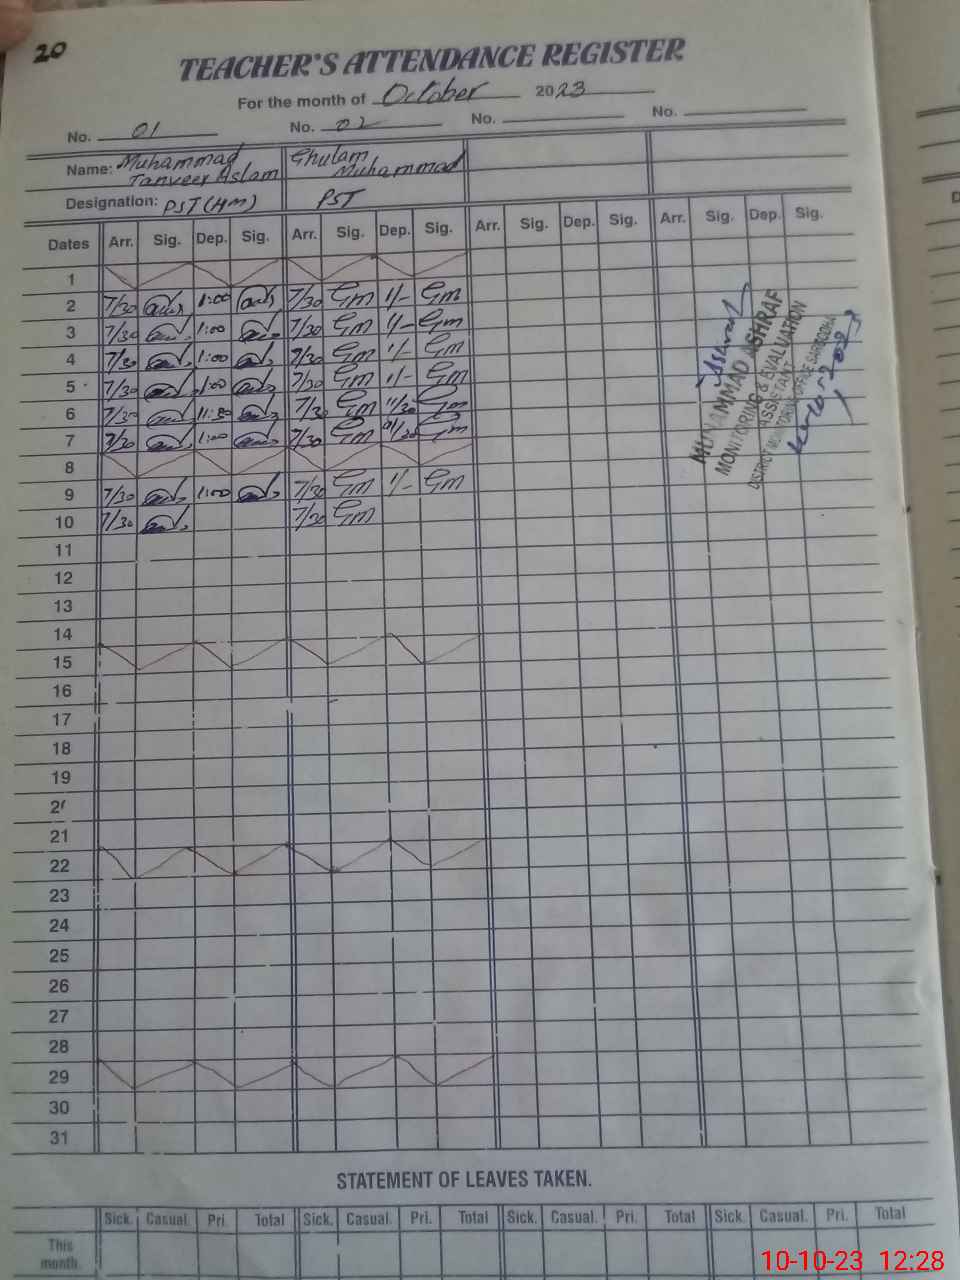 20
TEACHER'S ATTENDANCE REGISTER
For the month of October 2023
No. 01 No. 02 No. No.
Name: Muhammad Tanveer Aslam Ghulam Muhammad
Designation: PST (HM) PST
Dates Arr. Sig. Dep. Sig. Arr. Sig. Dep. Sig. Arr. Sig. Dep. Sig. Arr. Sig. Dep. Sig.
1
2 7/30 1:00 7/30 Gm 1/- Gm
3 7/30 1:00 7/30 Gm 1/- Gm
4 7/30 1:00 7/30 Gm 1/- Gm
5 7/30 1:00 7/30 Gm 1/- Gm
6 7/30 11:30 7/30 Gm 11/30 Gm
7 7/30 1:00 7/30 Gm Gm
8
9 7/30 1:00 7/30 Gm 1/- Gm
10 7/30 7/30 Gm
11
12
13
14
15
16
17
18
19
21
22
23
24
25
26
27
28
29
30
31
MUHAMMAD ASHRAF
MONITORING & EVALUATION
ASSISTANT
DISTRICT MONITORING OFFICE SARGODHA
STATEMENT OF LEAVES TAKEN.
Sick. Casual. Pri. Total Sick. Casual. Pri. Total Sick. Casual. Pri. Total Sick. Casual. Pri. Total
This
month.
10-10-23 12:28